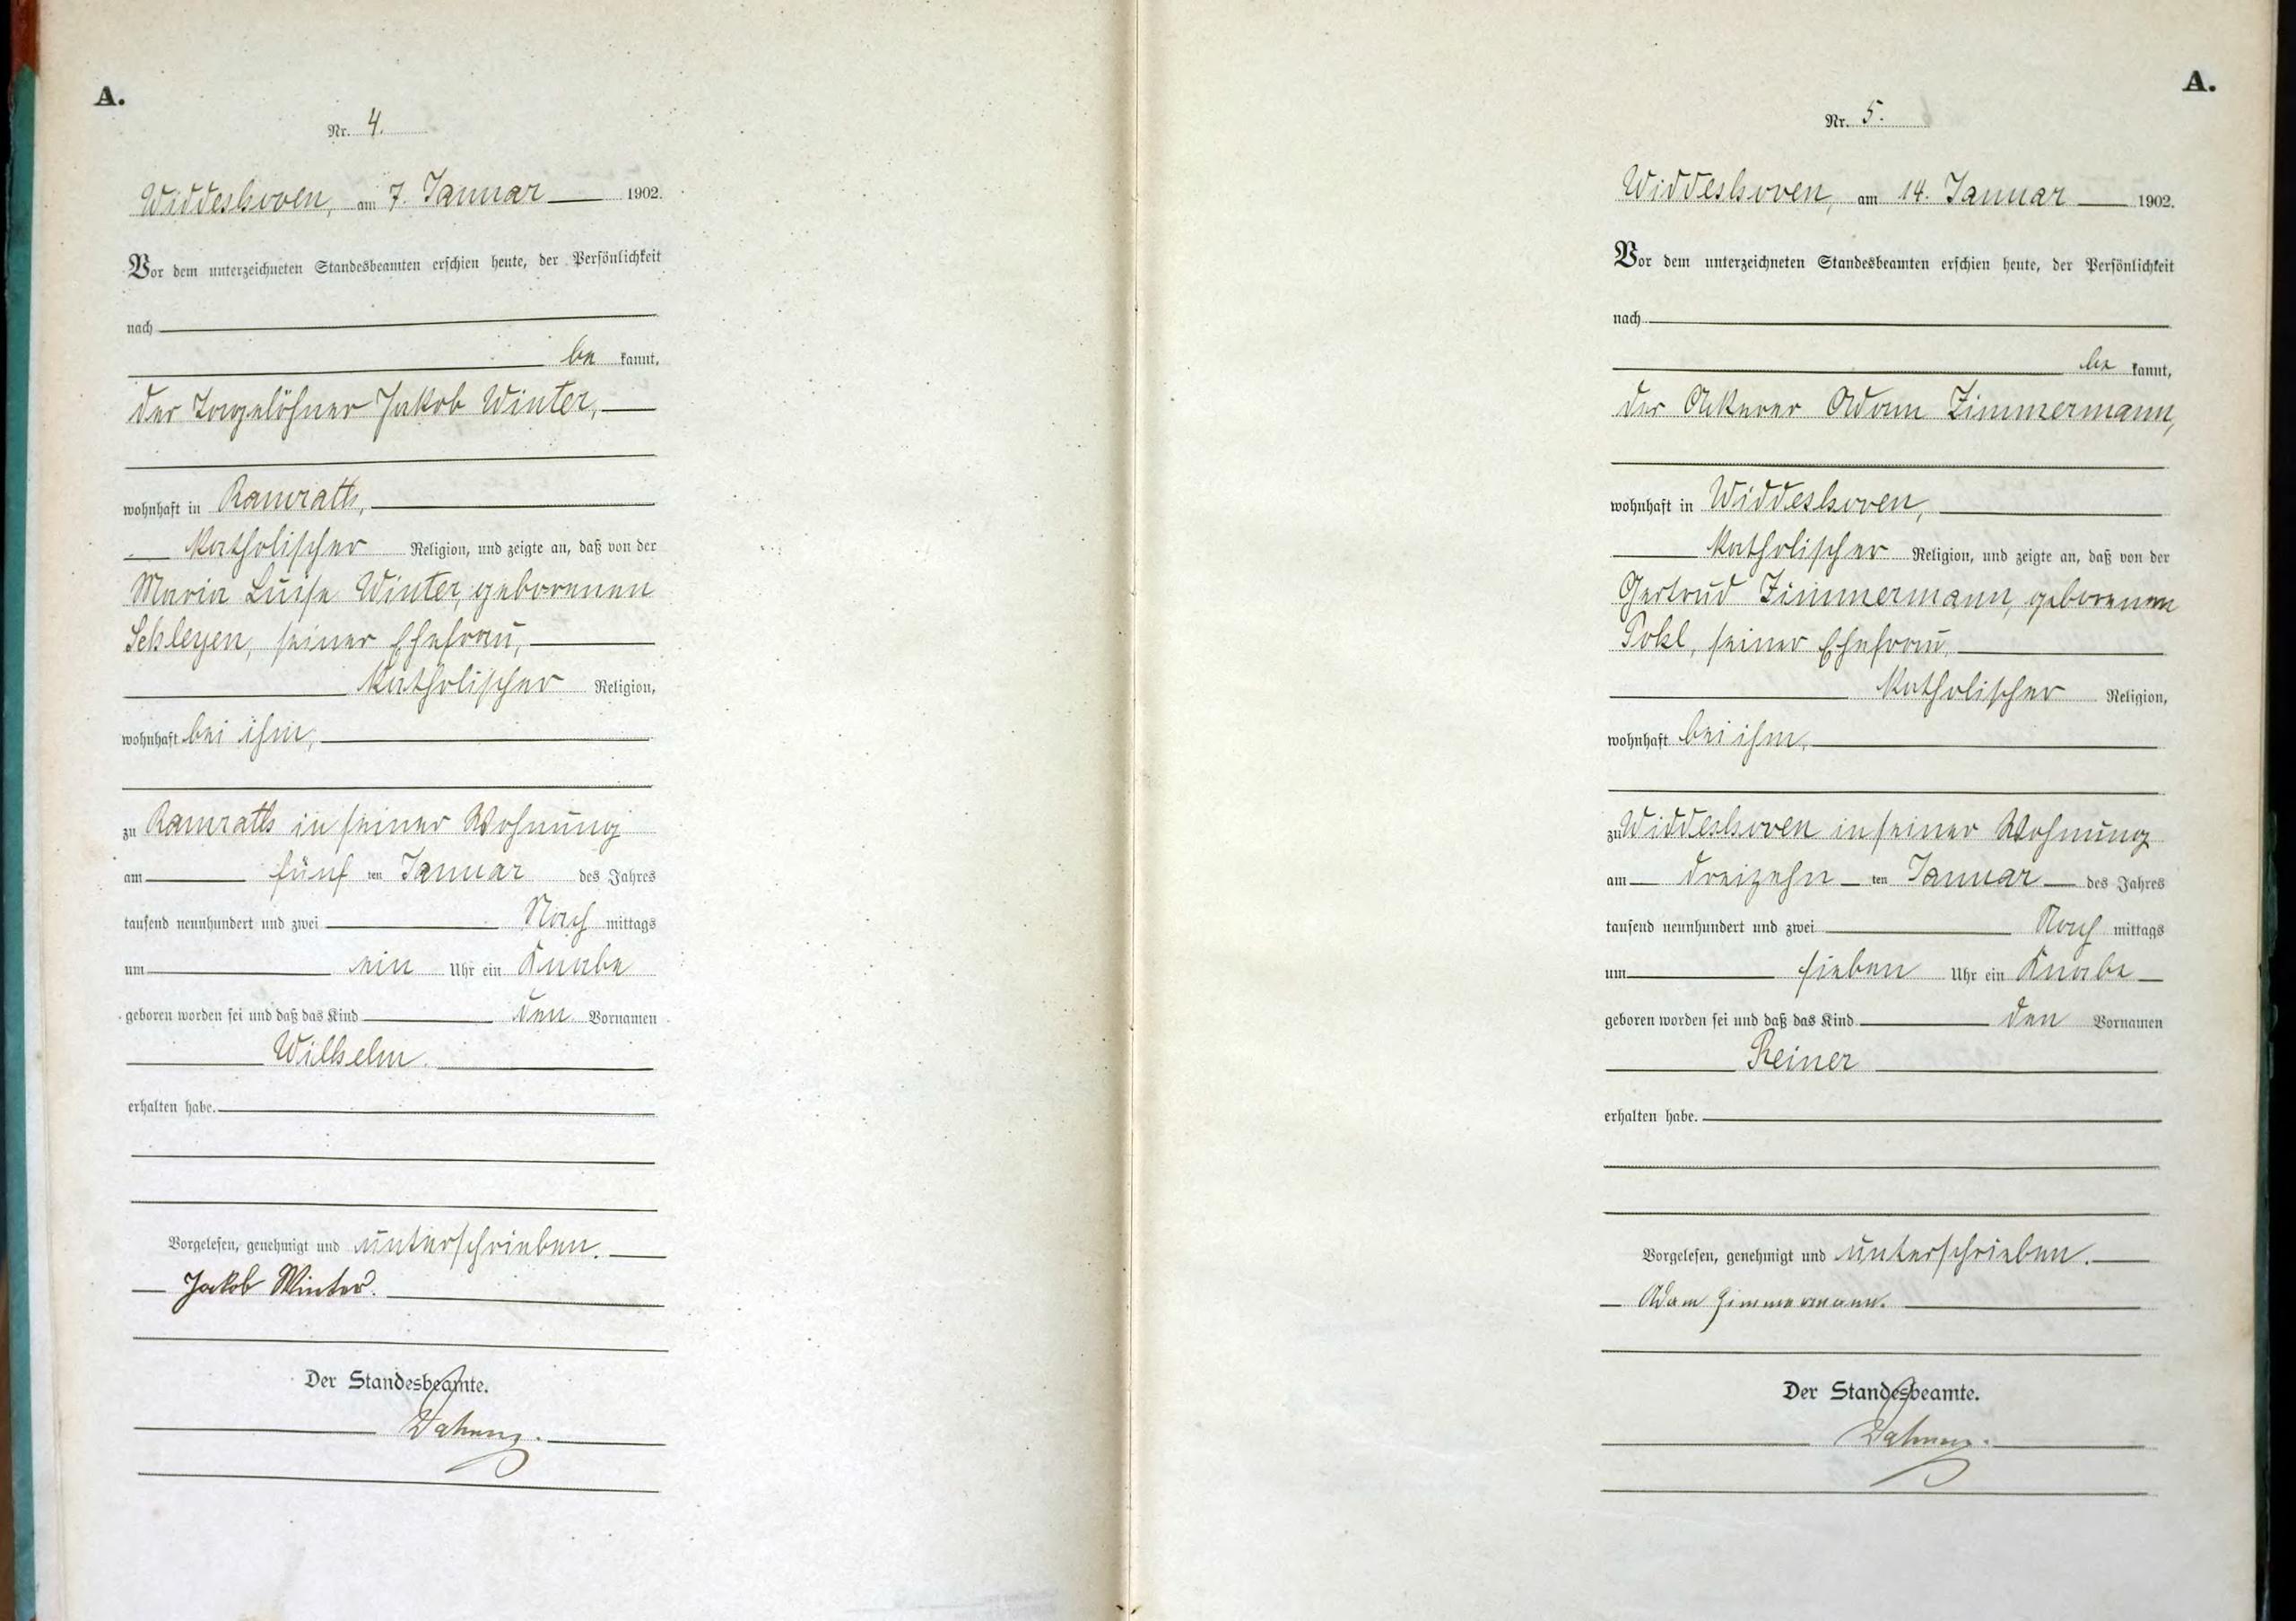 A.
Nr. 4.
Widdeshoven, am 7. Januar 1902.
Vor dem unterzeichneten Standesbeamten erschien heute, der Persönlichkeit
nach
be kannt,
der Tagelöhner Jakob Winter,
wohnhaft in Ramrath,
katholischer Religion, und zeigte an, daß von der
Maria Luise Winter, geborenen
Schleyen, seiner Ehefrau,
katholischer Religion,
wohnhaft bei ihm,
zu Ramrath in seiner Wohnung
am fünf ten Januar des Jahres
tausend neunhundert und zwei Nach mittags
um ein Uhr ein Knabe
geboren worden sei und daß das Kind den Vornamen
Wilhelm.
erhalten habe.
Vorgelesen, genehmigt und unterschrieben.
Jakob Winter.
Der Standesbeamte.
A.
Nr. 5.
Widdeshoven, am 14. Januar 1902.
Vor dem unterzeichneten Standesbeamten erschien heute, der Persönlichkeit
nach
be kannt,
der Ackerer Adam Zimmermann,
wohnhaft in Widdeshoven,
katholischer Religion, und zeigte an, daß von der
Gertrud Zimmermann, geborenen
seiner Ehefrau,
katholischer Religion,
wohnhaft bei ihm,
zu Widdeshoven in seiner Wohnung
am dreizehn ten Januar des Jahres
tausend neunhundert und zwei Nach mittags
um sieben Uhr ein Knabe
geboren worden sei und daß das Kind den Vornamen
Reiner
erhalten habe.
Vorgelesen, genehmigt und unterschrieben.
Adam Zimmermann.
Der Standesbeamte.